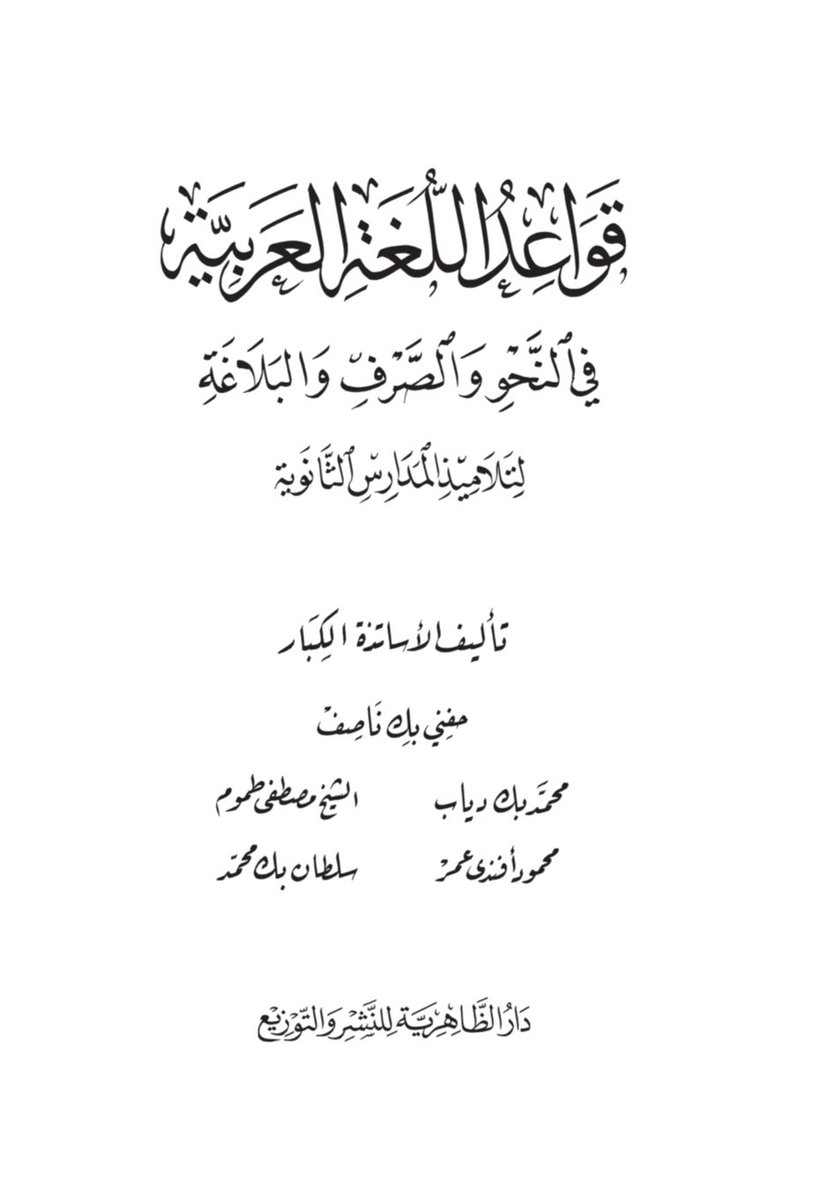 قَوَاعِدُ اللُّغَةِ العَرَبِيَّة
فِي ٱلنَّحْوِ وَٱلصَّرْفِ وَالبَلَاغَةِ
لِتَلَامِيْذِ ٱلمَدَارِسِ ٱلثَّانَوية
تأليف الأساتذة الكِبَار
حفني بك نَاصِفْ
محمَّد بك دياب الشيخ مصطفى طموم
محمود أفندي عمرْ سلطان بك محمّد
دَارُ الظَّاهِرِيَّة لِلنَّشْرِ وَالتَّوْزِيْع